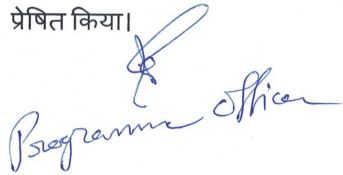 प्रेषित किया।
Programme Officer